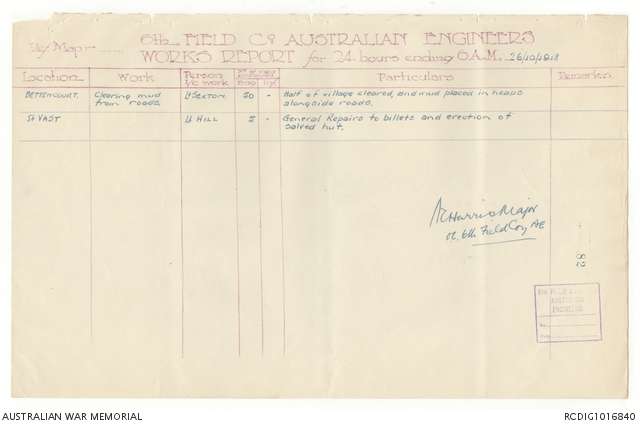 6th FIELD Co AUSTRALIAN ENGINEERS
Map
WORKS REPORT for 24 hours ending 6 A.M. 26/10/1918
Location Work Person i/c work Eng. Inf. Particulars Remarks
BETTENCOURT. Clearing mud from roads. Lt SEXTON 50 - Half of village cleared, and mud placed in heaps
alongside roads.
St VAST Lt HILL 5 - General Repairs to billets and erection of
salved hut.
Harris Major
OC. 6th Field Coy AE
82
ENGINEERS
AUSTRALIAN WAR MEMORIAL
RCDIG1016840